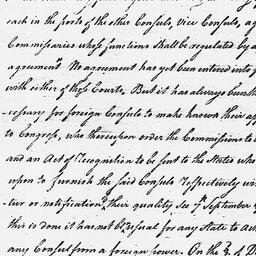 each in the ports of the other Consuls, Vice Consuls, ag
Commissaries whose functions shall be regulated by a
agreement". No agreement has yet been entered into
with either of those Courts. But it has always been th
-cessary for foreign Consuls to make known their ap
to Congress, who thereupon order the Commissions to
and an Act of Recognition to be sent to the States who
upon to furnish the said Consuls respectively wi
-tur or notification of their quality See 7th September
this is done it has not been usual for any State to Ack
any Consul from a foreign power. On the 3 d D